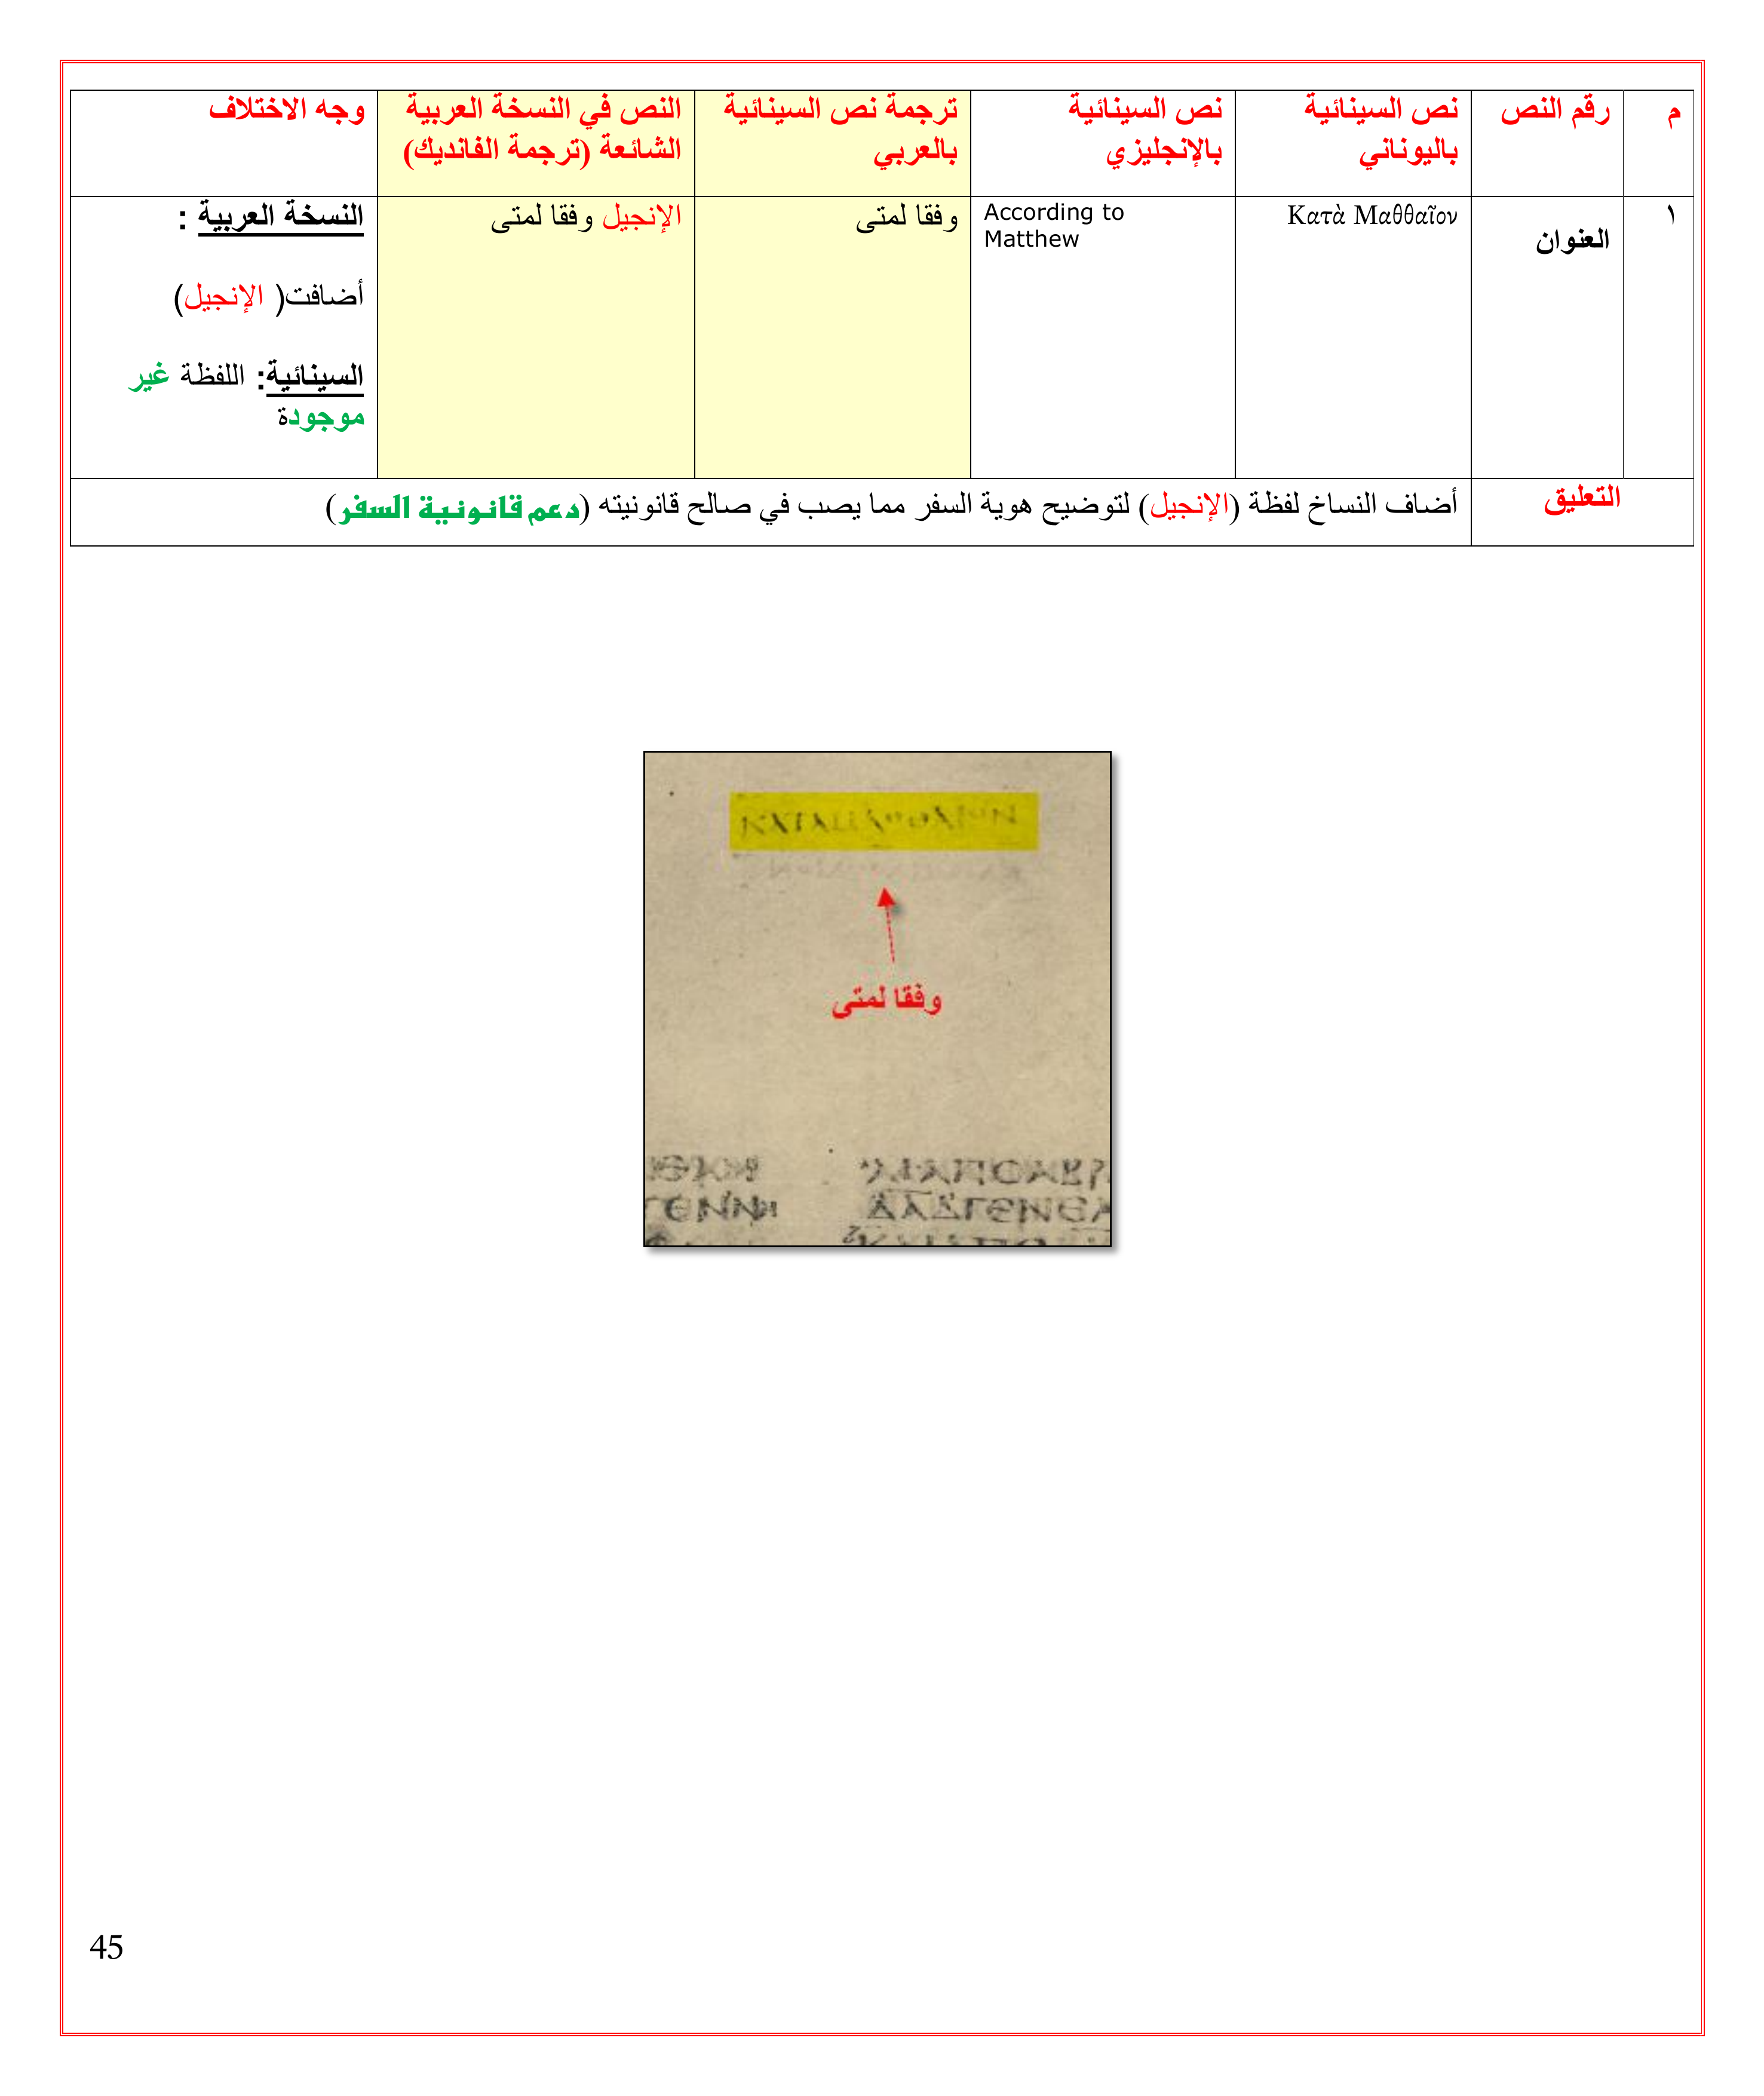 م
رقم النص
نص السينائية
باليوناني
نص السينائية
بالإنجليزي
ترجمة نص السينائية
بالعربي
النص في النسخة العربية
الشائعة (ترجمة الفانديك)
وجه الاختلاف
١
العنوان
Κατὰ Μαθθαῖον
According to
Matthew
وفقا لمتى
الإنجيل وفقا لمتى
النسخة العربية :
أضافت( الإنجيل)
السينائية: اللفظة غير
موجودة
التعليق
أضاف النساخ لفظة (الإنجيل) لتوضيح هوية السفر مما يصب في صالح قانونيته (دعم قانونية السفر)
وفقا لمتى
45